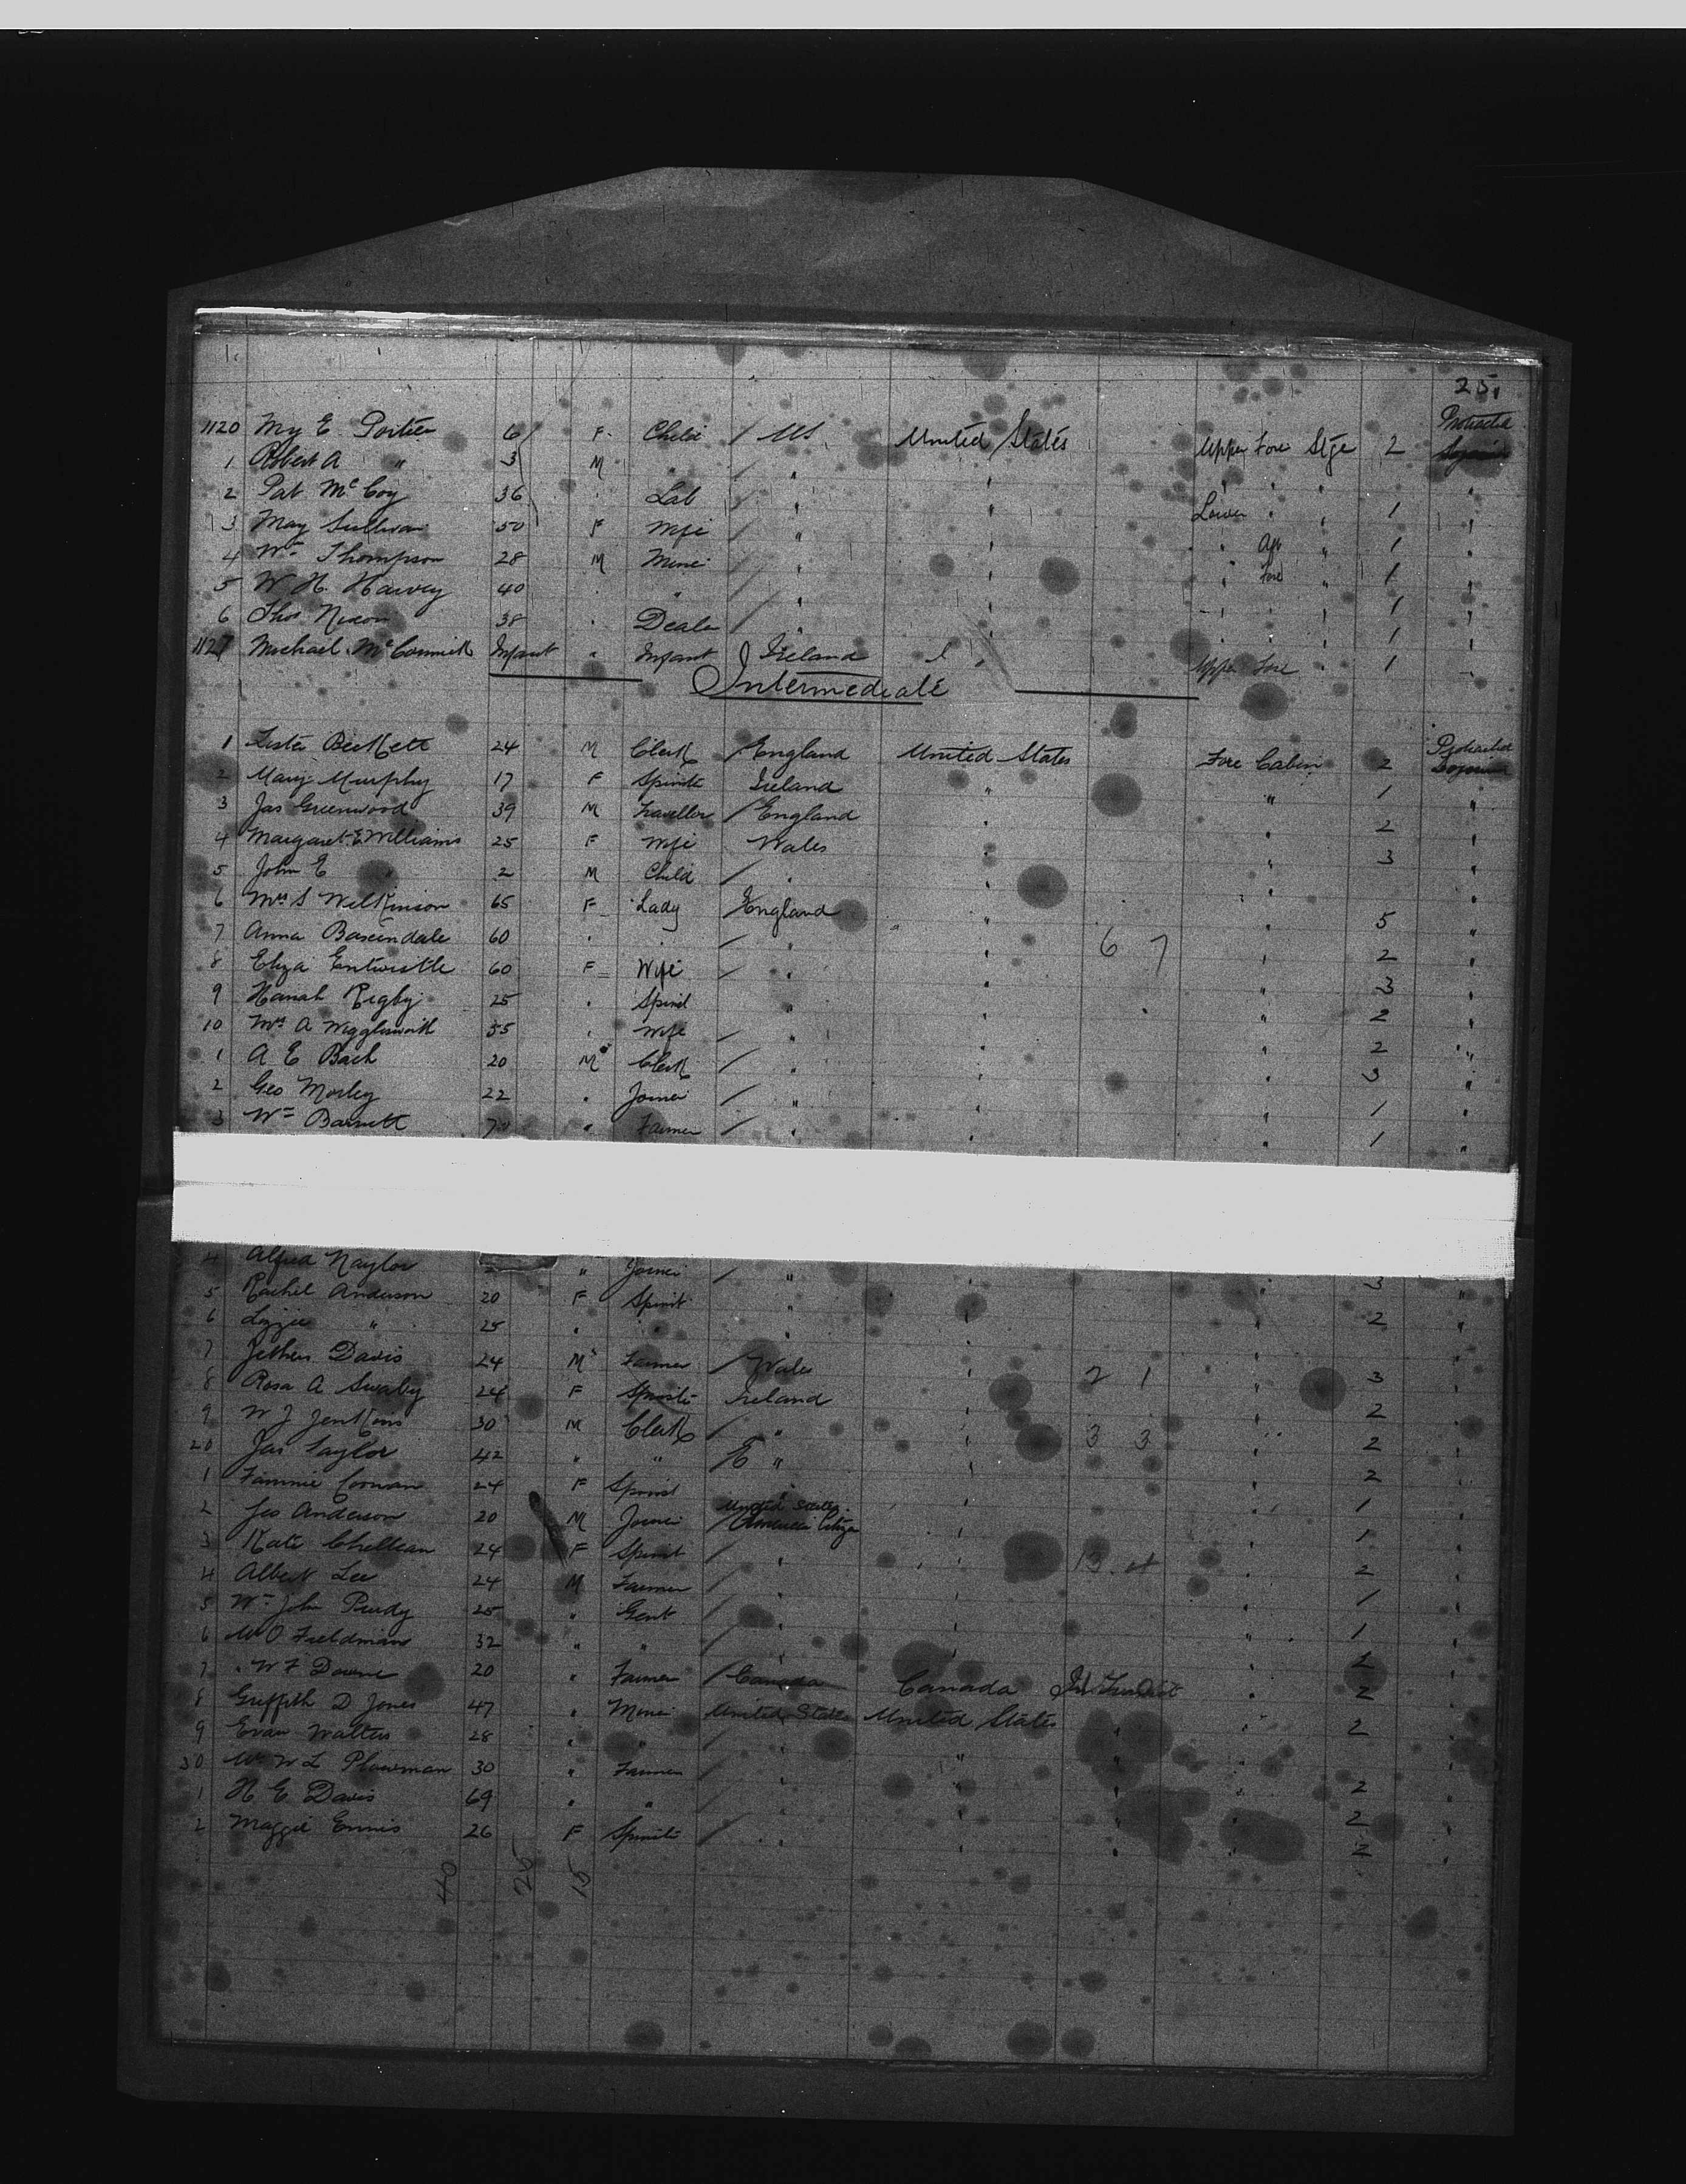 25.
1120 My E. Portier 6 F. Child / US United States Upper Fore Stge 2 Protracted Sojourn
1 Robert A " 3 M " / " " " " " "
2 Pat McCoy 36 " Lab / " " Lower " " 1 "
3 May Sullivan 50 F Wife / " " " Aft " 1 "
4 Wm Thompson 28 M Miner / " " " Fore " 1 "
5 W. H. Harvey 40 " " / " " " " " 1 "
6 Thos Nixon 38 " Dealer / " " " " " 1 "
1127 Michael McCormick Infant " Infant Ireland " Upper Fore " 1 "
Intermediate
1 Lester Beckett 24 M Clerk / England United States Fore Cabin 2 Protracted Sojourn
2 Mary Murphy 17 F Spinste Ireland " " 1 "
3 Jas Greenwood 39 M Traveller / England " " 2 "
4 Margaret E Williams 25 F Wife Wales " " 3 "
5 John E " 2 M Child / " " " "
6 Mrs S Wilkinson 65 F Lady / England " " 5 "
7 Anna Baxendale 60 " " / " " 6 7 " 2 "
8 Eliza Entwistle 60 F Wife / " " " 3 "
9 Hanah Rigby 25 " Spinst " " " 2 "
10 Mrs A Wigglesworth 55 " Wife / " " " 2 "
1 A E Bach 20 M Clerk / " " " 3 "
2 Geo Morley 22 " Joiner / " " " 1 "
3 Wm Barnett " Farmer / " " " 1 "
4 Alfred Naylor " Joiner / " " 3 "
5 Rachel Anderson 20 F Spinst " " " 2 "
6 Lizzie " 25 " " " " "
7 Jethen Davis 24 M Farmer / Wales " 2 1 " 3 "
8 Rosa A Swaby 24 F Spinste Ireland " " 2 "
9 W J Jenkins 30 M Clerk / " " 3 3 " 2 "
20 Jas Taylor 42 " " / E " " " 2 "
1 Fannie Coonan 24 F Spinst " " 1 "
2 Jas Anderson 20 M Joiner / United States American Citizen " " 1 "
3 Kate 24 F Spinst / " " 13 " 2 "
4 Albert Lee 24 M Farmer / " " 1 "
5 Wm John Purdy 25 " Gent / " " " 1 "
6 M O Fieldman 32 " " / " " " 1 "
7 " W F Downe 20 " Farmer / Canada Canada In Transit " 2 "
8 Griffith D Jones 47 " Miner United States United States " " 2 "
9 Evan Walters 28 " " / " " "
30 Mr W L Plowman 30 " Farmer / " " " " 2 "
1 H E Davis 69 " " / " " " " 2 "
2 Maggie Ennis 26 F Spinste / " " " " 2 "
40 25 15